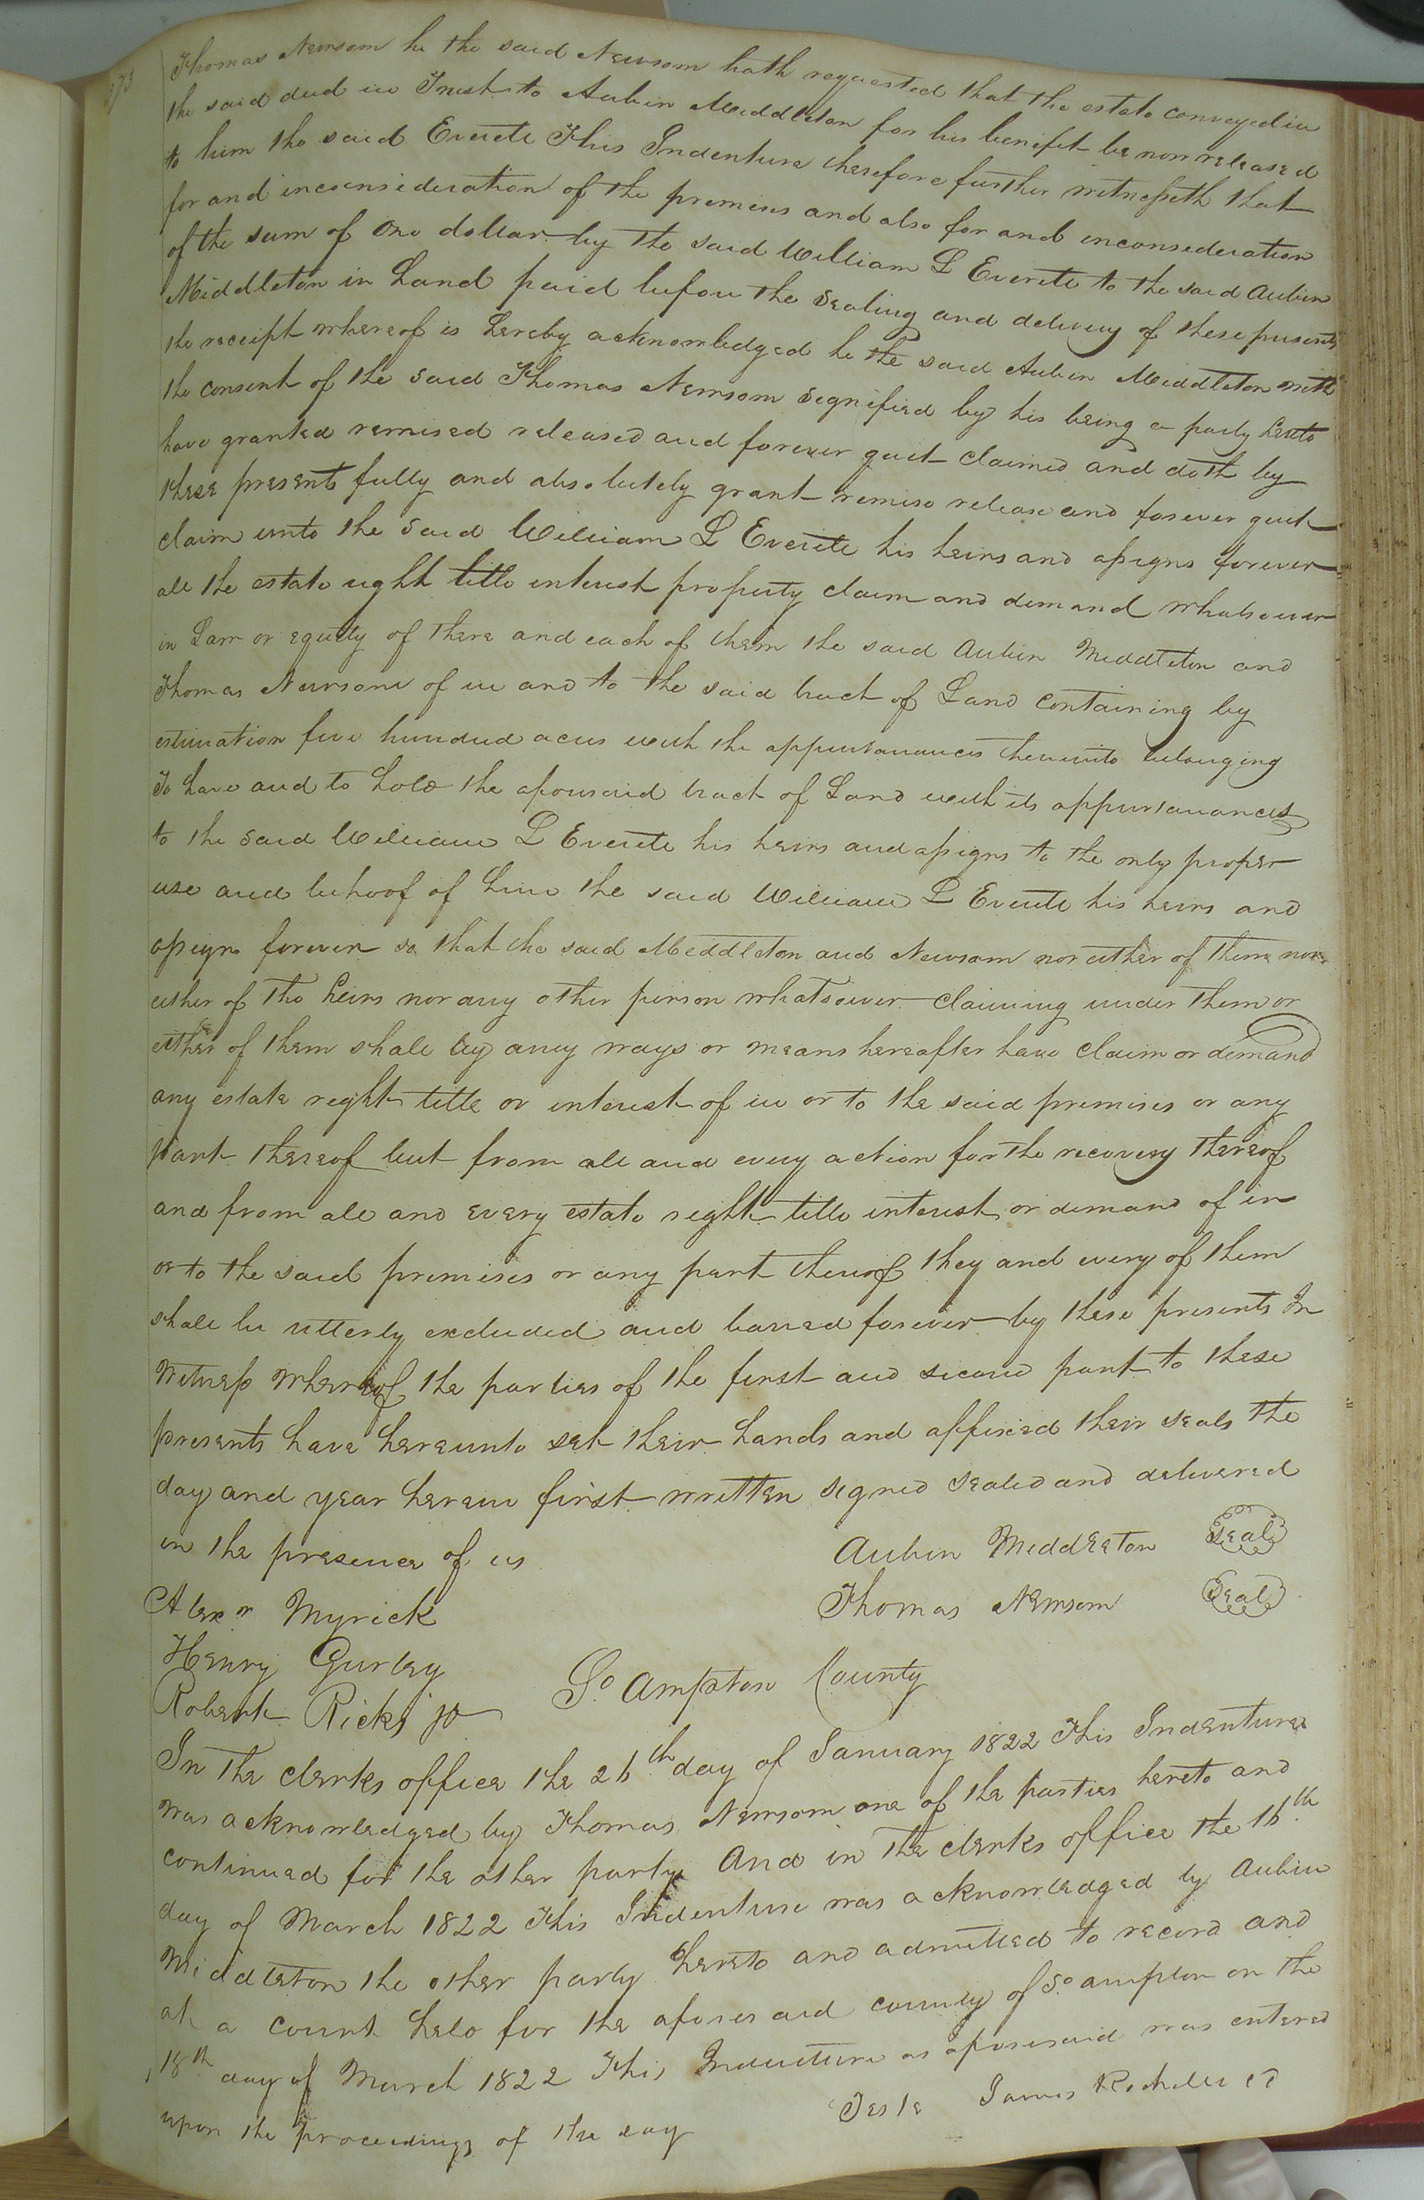 Thomas Newsom he the said Newsom hath requested that the estate conveyed in
the said deed in Trust to Aubin Middleton for his benefit be now released
to him the said Everete This Indenture therefore further witnesseth that
for and inconsideration of the premises and also for and inconsideration
of the sum of One dollar by the said William L Everete to the said Aubin
Middleton in hand paid before the Sealing and delivery of these presents
the receipt whereof is hereby acknowledged he the said Aubin Middleton with
the consent of the said Thomas Newsom signified by his being a party hereto
have granted remised released and forever quit claimed and doth by
these presents fully and absolutely grant remise release and forever quit
claim unto the said William L Everete his heirs and assigns forever
all the estate right title interest property claim and demand whatsoever
in Law or equity of there and each of them the said Aubin Middleton and
Thomas Newsom of in and to the said tract of Land containing by
estimation five hundred acres with the appurtanances thereunto belonging
To have and to hold the aforesaid tract of Land with its appurtanances
to the said William L Everete his heirs and assigns to the only proper
use and behoof of him the said William L Everete his heirs and
assigns forever so that the said Middleton and Newsom nor either of them nor
either of the heirs nor any other person whatsoever claiming under them or
either of them shall by any ways or means hereafter have claim or demand
any estate right title or interest of in or to the said premises or any
part thereof but from all and every action for the recovery thereof
and from all and every estate right title interest or demand of in
or to the said premises or any part thereof they and every of them
shall be utterly excluded and barred forever by these presents In
Witness whereof the parties of the first and second part to these
presents have hereunto set their hands and affixed their seals the
day and year herein first written signed sealed and delivered
in the presence of us Aubin Middleton Seal
Alexr Myrick Thomas Newsom Seal
Henry Gurley
Robert Ricks jr So ampton County
In the clerks office the 26th day of January 1822 This Indenture
was acknowledged by Thomas Newsom one of the parties hereto and
continued for the other party And in the clerks office the 16th
day of March 1822 This Indenture was acknowledged by Aubin
Middleton the other party hereto and admitted to record and
at a court held for the aforesaid county of So ampton on the
18th day of March 1822 This Indenture as aforesaid was entered
upon the proceedings of the day Teste James Rochelle